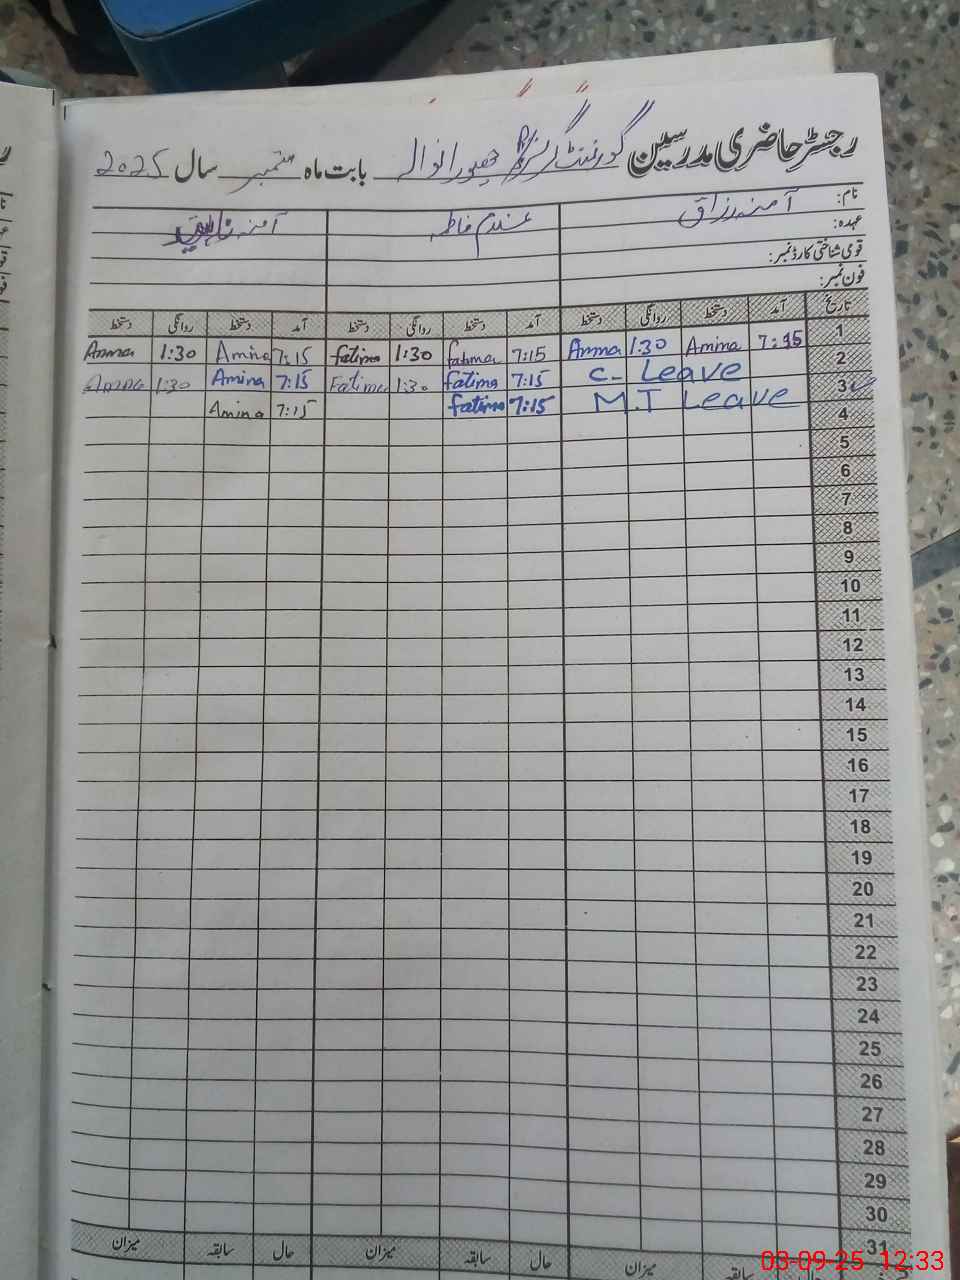 رجسٹر حاضری مدرسین گورنمنٹ گرلز
بابت ماہ ستمبر سال 2025
نام: آمنہ رزاق غلام فاطمہ آمنہ
عہدہ:
قومی شناختی کارڈ نمبر:
فون نمبر:
تاریخ آمد دستخط روانگی دستخط آمد دستخط روانگی دستخط آمد دستخط روانگی دستخط
1 7:15 Amina 1:30 Amna 7:15 fatima 1:30 fatima 7:15 Amina 1:30 Amna
2 C- Leave 7:15 fatima 1:30 Fatima 7:15 Amina 1:30 Amna
3 M.T Leave 7:15 fatima 7:15 Amina
4
5
6
7
8
9
10
11
12
13
14
15
16
17
18
19
20
21
22
23
24
25
26
27
28
29
30
31
حال سابقہ میزان حال سابقہ میزان حال سابقہ میزان
03-09-25 12:33